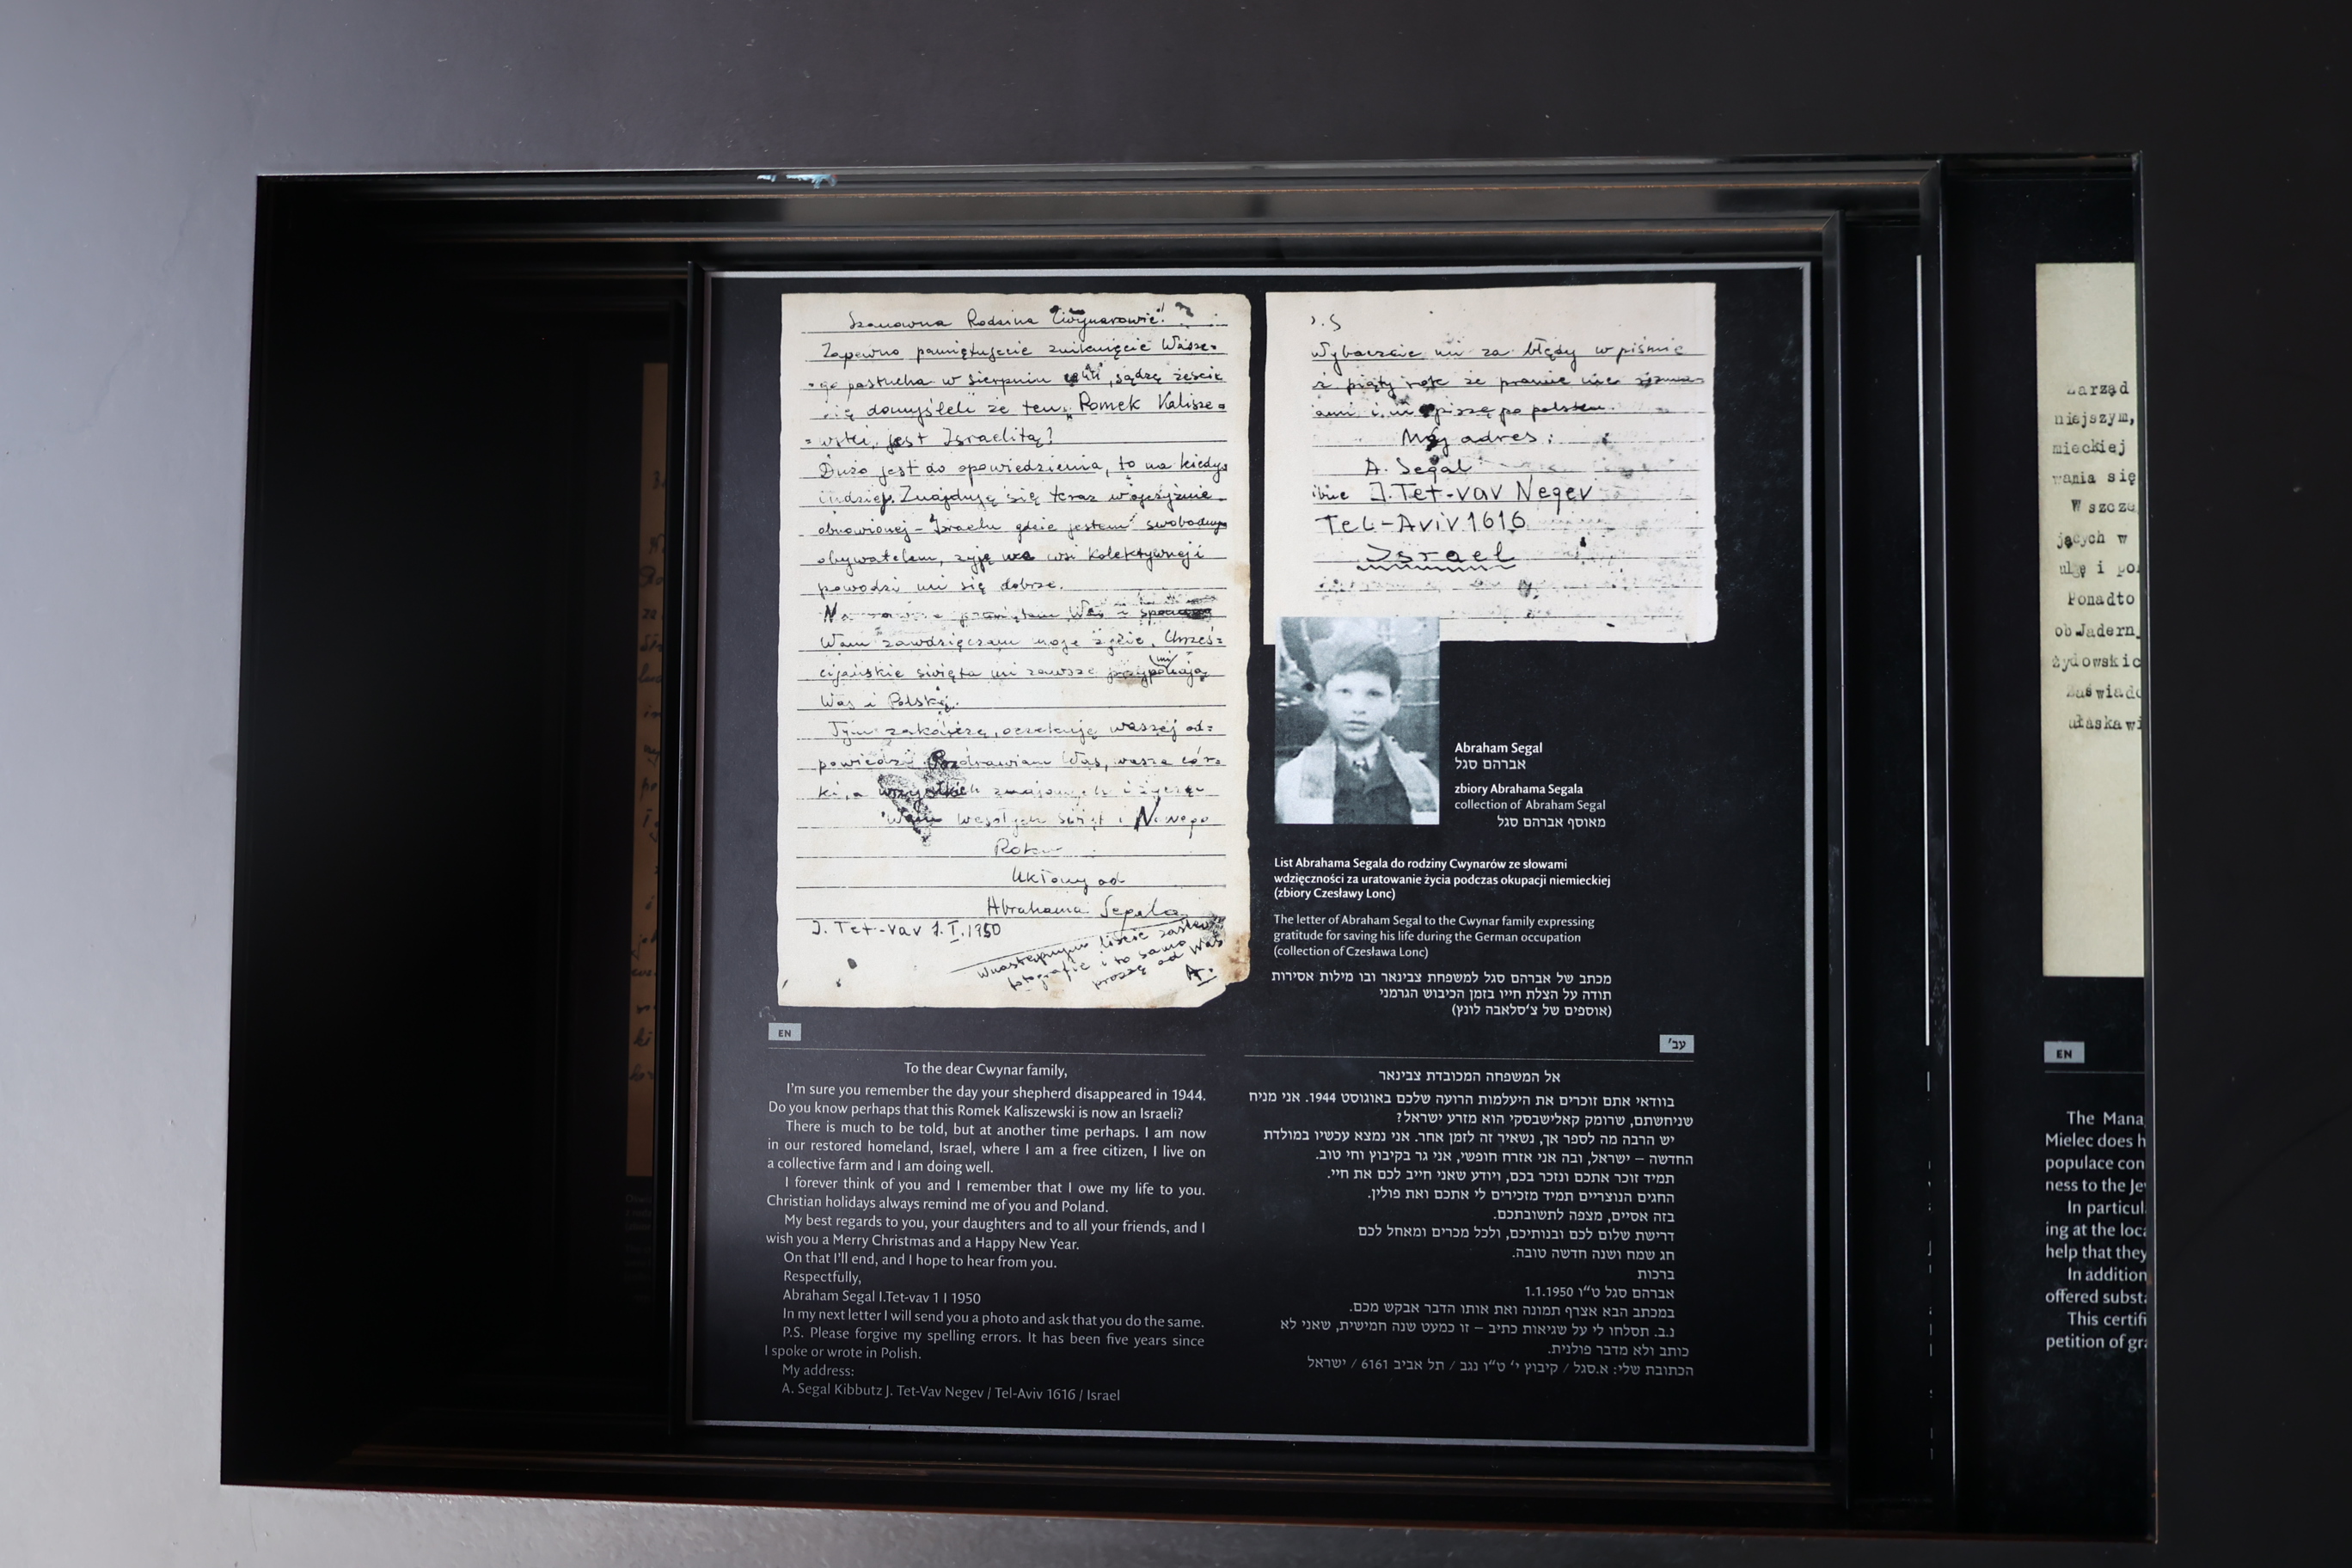 Szanowna Rodzina Cwynarowie!
Zapewno pamiętujecie zniknięcie Wasze=
=go pastucha w sierpniu sądzę żeście
się domyśleli że ten "Romek Kalisze=
=wski, jest Izraelitą?
Dużo jest do opowiedzenia, to na kiedy
indziej. Znajduję się teraz w ojczyźnie
obnowionej – Izraelu gdzie jestem swobodnym
obywatelem, żyję we wsi kolektywnej i
powodzi mi się dobrze.
Was i
Wam zawdzięczam moje życie. Chrześ=
cijańskie święta mi zawsze
Was i Polskę.
Tym zakończę, oczekuję waszej od=
powiedzi Pozdrawiam Was, wasze cór=
ki, a wszystkich znajomych i życzę
Wam wesołych świąt i Nowego
Roku
Ukłony od
Abrahama Segala
J. Tet-vav 1.I.1950
W następnym liście
fotografię i to samo
proszę od Was
A.
P.S
Wybaczcie mi za błędy w piśmie
piąty rok że prawie nie
ani i nie piszę po polsku.
Mój adres:
A. Segal
J. Tet-vav Negev
Tel-Aviv 1616
Israel
Abraham Segal
אברהם סגל
zbiory Abrahama Segala
collection of Abraham Segal
מאוסף אברהם סגל
List Abrahama Segala do rodziny Cwynarów ze słowami
wdzięczności za uratowanie życia podczas okupacji niemieckiej
(zbiory Czesławy Lonc)
The letter of Abraham Segal to the Cwynar family expressing
gratitude for saving his life during the German occupation
(collection of Czesława Lonc)
מכתב של אברהם סגל למשפחת צבינאר ובו מילות אסירות
תודה על הצלת חייו בזמן הכיבוש הגרמני
(אוספים של צ'סלאבה לונץ)
EN
To the dear Cwynar family,
I'm sure you remember the day your shepherd disappeared in 1944.
Do you know perhaps that this Romek Kaliszewski is now an Israeli?
There is much to be told, but at another time perhaps. I am now
in our restored homeland, Israel, where I am a free citizen, I live on
a collective farm and I am doing well.
I forever think of you and I remember that I owe my life to you.
Christian holidays always remind me of you and Poland.
My best regards to you, your daughters and to all your friends, and I
wish you a Merry Christmas and a Happy New Year.
On that I'll end, and I hope to hear from you.
Respectfully,
Abraham Segal I.Tet-vav 1 I 1950
In my next letter I will send you a photo and ask that you do the same.
P.S. Please forgive my spelling errors. It has been five years since
I spoke or wrote in Polish.
My address:
A. Segal Kibbutz J. Tet-Vav Negev / Tel-Aviv 1616 / Israel
עב'
אל המשפחה המכובדת צבינאר
בוודאי אתם זוכרים את היעלמות הרועה שלכם באוגוסט 1944. אני מניח
שניחשתם, שרומק קאלישבסקי הוא מזרע ישראל?
יש הרבה מה לספר אך, נשאיר זה לזמן אחר. אני נמצא עכשיו במולדת
החדשה – ישראל, ובה אני אזרח חופשי, אני גר בקיבוץ וחי טוב.
תמיד זוכר אתכם ונזכר בכם, ויודע שאני חייב לכם את חיי.
החגים הנוצריים תמיד מזכירים לי אתכם ואת פולין.
בזה אסיים, מצפה לתשובתכם.
דרישת שלום לכם ובנותיכם, ולכל מכרים ומאחל לכם
חג שמח ושנה חדשה טובה.
ברכות
אברהם סגל ט"ו 1.1.1950
במכתב הבא אצרף תמונה ואת אותו הדבר אבקש מכם.
נ.ב. תסלחו לי על שגיאות כתיב – זו כמעט שנה חמישית, שאני לא
כותב ולא מדבר פולנית.
הכתובת שלי: א.סגל / קיבוץ י' ט"ו נגב / תל אביב 6161 / ישראל
Zarząd
niejszym,
mieckiej
wania się
W szcze
jących w
ulgę i po
Ponadto
ob Jadern
żydowskic
Zaświadc
ułaskawi
EN
The Mana
Mielec does h
populace con
ness to the Je
In particul
ing at the loc
help that they
In addition
offered subst
This certifi
petition of gr